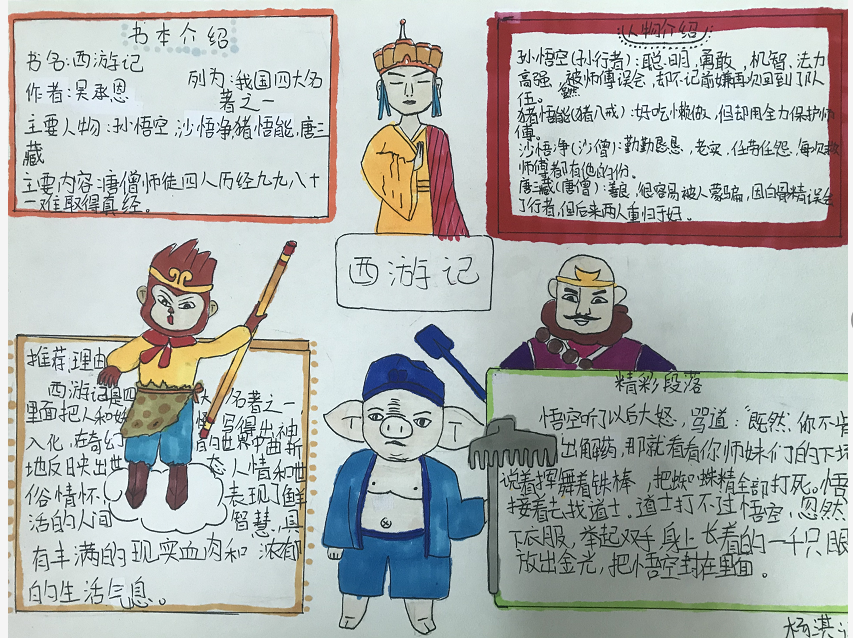 书本介绍
书名:西游记
列为:我国四大名
著之一
作者:吴承恩
主要人物:孙悟空,沙悟净猪悟能,唐三
藏
主要内容:唐僧师徒四人历经九九八十
一难取得真经。
人物介绍
孙悟空(孙行者):聪明,勇敢,机智,法力
高强,虽然被师傅误会,却不记前嫌再次回到了队
伍。
猪悟能(猪八戒):好吃懒做,但却用全力保护师
傅。
沙悟净(沙僧):勤勤恳恳,老实,任劳任怨,每次救
师傅都有他的份。
唐三藏(唐僧):善良,很容易被人蒙骗,因白骨精误会
了行者,但后来两人重归于好。
西游记
推荐理由
西游记是四大名著之一,
里面把人和 写得出神
入化,在奇幻 的世界中曲折
地反映出世态人情和世
俗情怀,表现了鲜
活的人间智慧,具
有丰满的现实血肉和浓郁
的生活气息。
精彩段落
悟空听了以后大怒,骂道:“既然,你不肯
出解药,那就看看你师妹们的下场
说着挥舞着铁棒,把蜘蛛精全部打死。悟
接着去找道士。道士打不过悟空,忽然
下衣服,举起双手,身上长着的一千只眼
放出金光,把悟空封在里面。
杨淇